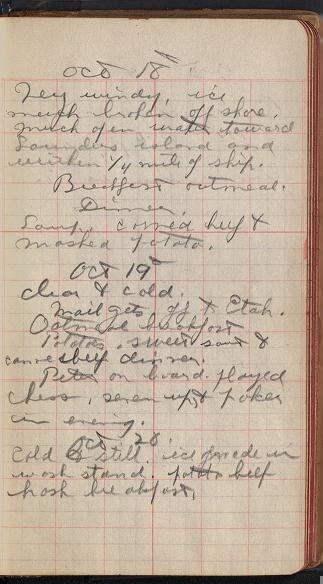 Oct 18th
Very windy, ice
much broken off shore.
Much open water toward
Saunders Island and
within 1/4 mile of ship.
Breakfast oatmeal.
Dinner.
Soup, corned beef &
mashed potato.
Oct 19th
Clear & cold.
Mail gets off to Etah.
Oatmeal breakfast
Potatoes, sweet &
corned beef dinner.
Peter on board. played
chess, seven up & poker
in evening.
Oct. 20.
Cold & still. ice in
wash stand. potato beef
hash breakfast.